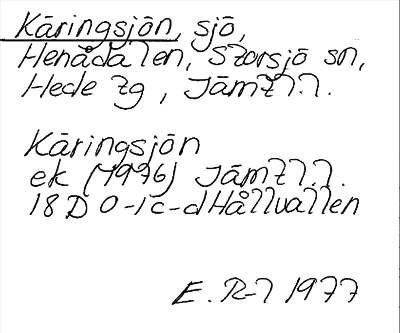 Käringsjön, sjö,
Henådalen, Storsjö sn,
Hede tg, Jämtl.l.

Käringsjön
ek (1976) Jämtl.l.
18D 0-1c-d Hållvallen

E. R-l 1977